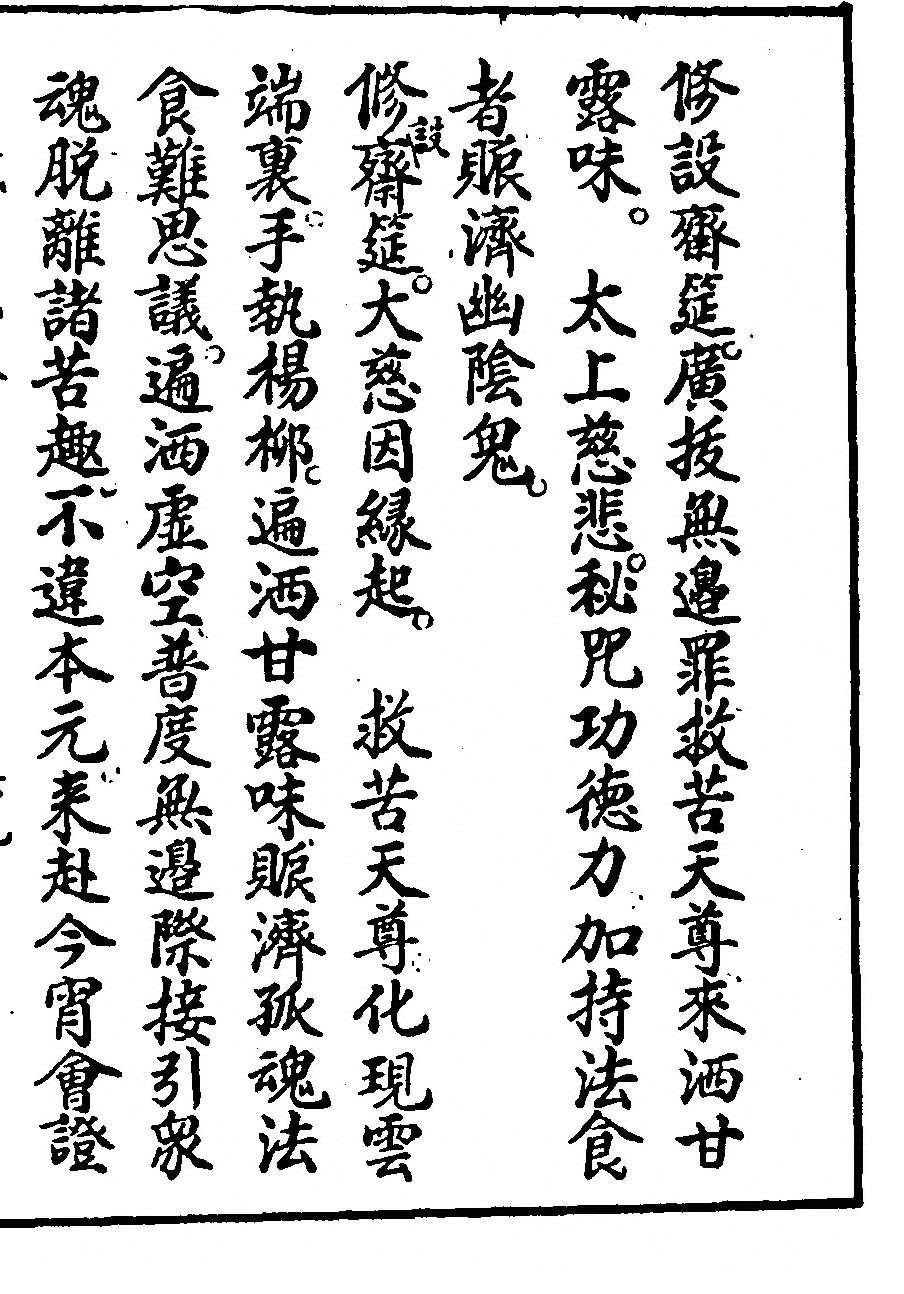 修設齋筵。廣拔無邊罪救苦天尊來洒甘
露味。太上慈悲。秘咒功德力加持法食
者賑濟幽陰鬼。
修設齋筵。大慈因緣起。救苦天尊化現雲
端裏。手執楊柳。遍洒甘露味賑濟孤魂法
食難思議。遍洒虛空普度無邊際接引眾
魂脫離諸苦趣。不違本元来赴今宵會證